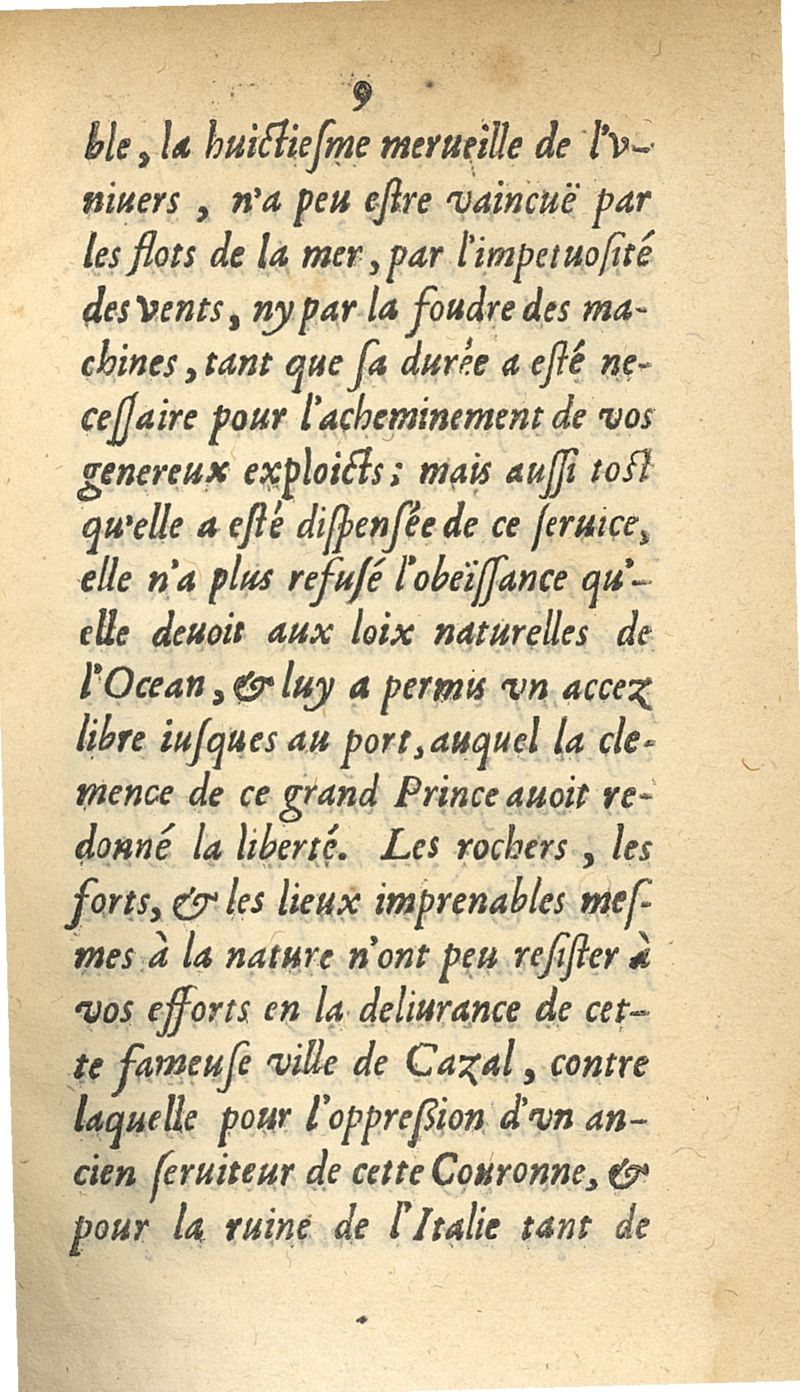 9
ble, la huictieſme merueille de l'v-
niuers, n'a peu eſtre vaincuë par
les flots de la mer, par l'impetuoſité
des vents, ny par la foudre des ma-
chines, tant que ſa durée a eſté ne-
ceſſaire pour l'acheminement de vos
genereux exploicts; mais auſſi toſt
qu'elle a eſté diſpenſée de ce ſeruice,
elle n'a plus refuſé l'obeïſſance qu'-
elle deuoit aux loix naturelles de
l'Ocean, & luy a permis vn accez
libre iuſques au port, auquel la cle-
mence de ce grand Prince auoit re-
donné la liberté. Les rochers, les
forts, & les lieux imprenables meſ-
mes à la nature n'ont peu reſiſter à
vos efforts en la deliurance de cet-
te fameuſe ville de Cazal, contre
laquelle pour l'oppreßion d'vn an-
cien ſeruiteur de cette Couronne, &
pour la ruine de l'Italie tant de